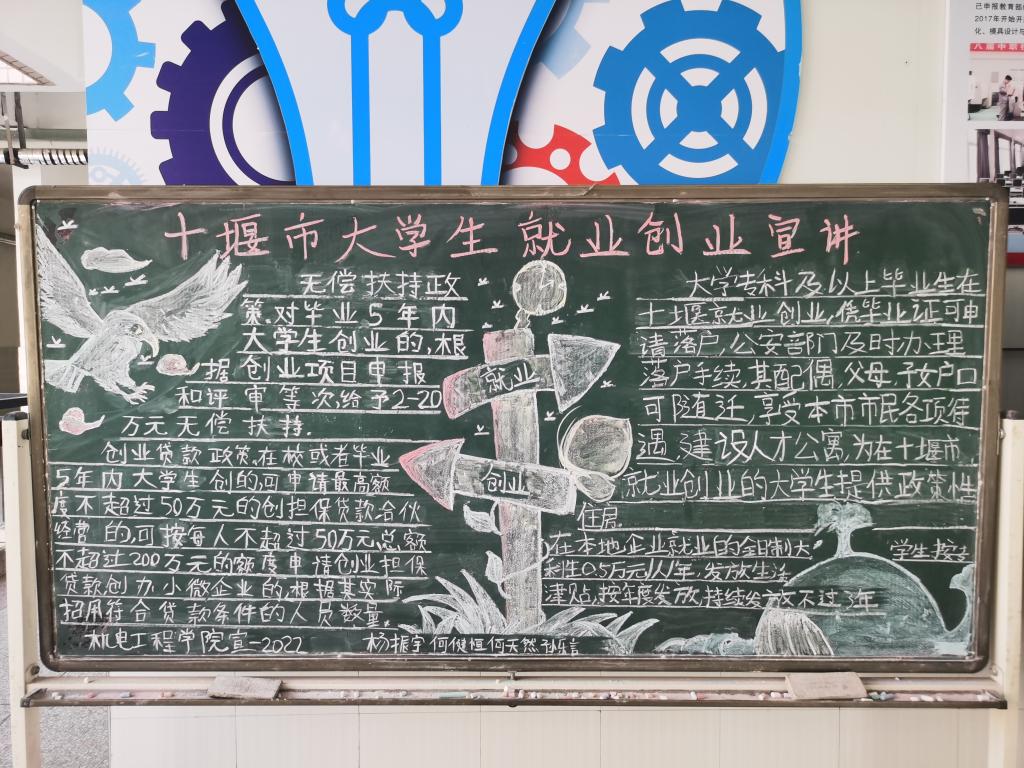 已申报教育部
2017年开始开
化、模具设计与
八届中职
十堰市大学生就业创业宣讲
无偿扶持政
策对毕业5年内
大学生创业的,根
据创业项目申报
和评审等次给予2-20
万元无偿扶持.
创业贷款政策,在校或者毕业
5年内大学生创的,可申请最高额
度不超过50万元的创担保贷款合伙
经营的,可按每人不超过50万元,总额
不超过200万元的额度申请创业担保
贷款创办小微企业的,根据其实际
招用符合贷款条件的人员数量.
机电工程学院宣-2022
就业
创业
大学专科及以上毕业生在
十堰就业创业,凭毕业证可申
请落户,公安部门及时办理
落户手续,其配偶,父母,子女户口
可随迁,享受本市市民各项待
遇 建设人才公寓,为在十堰市
就业创业的大学生提供政策性
住房
在本地企业就业的全日制大学生按
0.5万元/人/年,发放生活
补贴,按年度发放,持续发放不过3年
杨振宇 何健恒 何天然 孙乐言